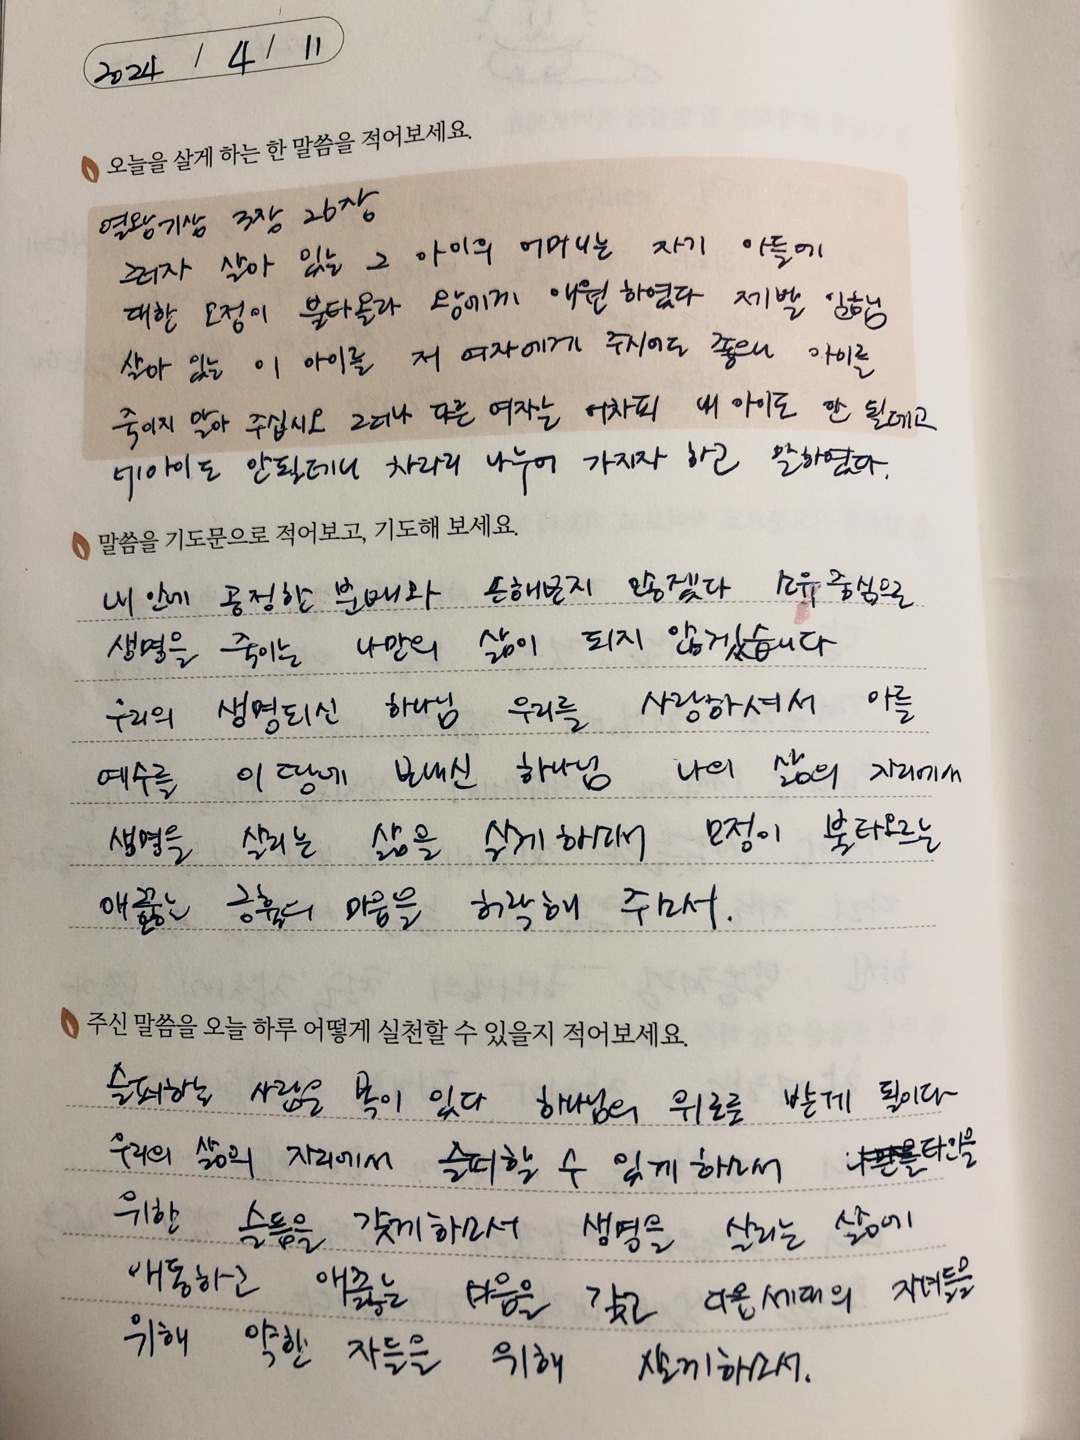 2024 / 4 / 11
오늘을 살게 하는 한 말씀을 적어보세요.
열왕기상 3장 26장
그러자 살아 있는 그 아이의 어머니는 자기 아들에
대한 모정이 불타올라 왕에게 애원하였다 제발 임금님
살아 있는 이 아이를 저 여자에게 주시어도 좋으니 아이를
죽이지 말아 주십시오 그러나 다른 여자는 어차피 내 아이도 안 될테고
네아이도 안될테니 차라리 나누어 가지자 하고 말하였다.
말씀을 기도문으로 적어보고, 기도해 보세요.
내 안에 공정한 분배와 손해보지 않겠다 소유 중심으로
생명을 죽이는 나만의 삶이 되지 않겠습니다
우리의 생명되신 하나님 우리를 사랑하셔서 아들
예수를 이 땅에 보내신 하나님 나의 삶의 자리에서
생명을 살리는 삶을 살게하소서 모정이 불타오르는
애끓는 긍휼의 마음을 허락해 주소서.
주신 말씀을 오늘 하루 어떻게 실천할 수 있을지 적어보세요.
슬퍼하는 사람은 복이 있다 하나님의 위로를 받게 될이다
우리의 삶의 자리에서 슬퍼할 수 있게하소서 타인을
위한 슬픔을 갖게하소서 생명을 살리는 삶에
배통하고 애끓는 마음을 갖고 다음세대의 자녀들을
위해 약한 자들을 위해 살게하소서.